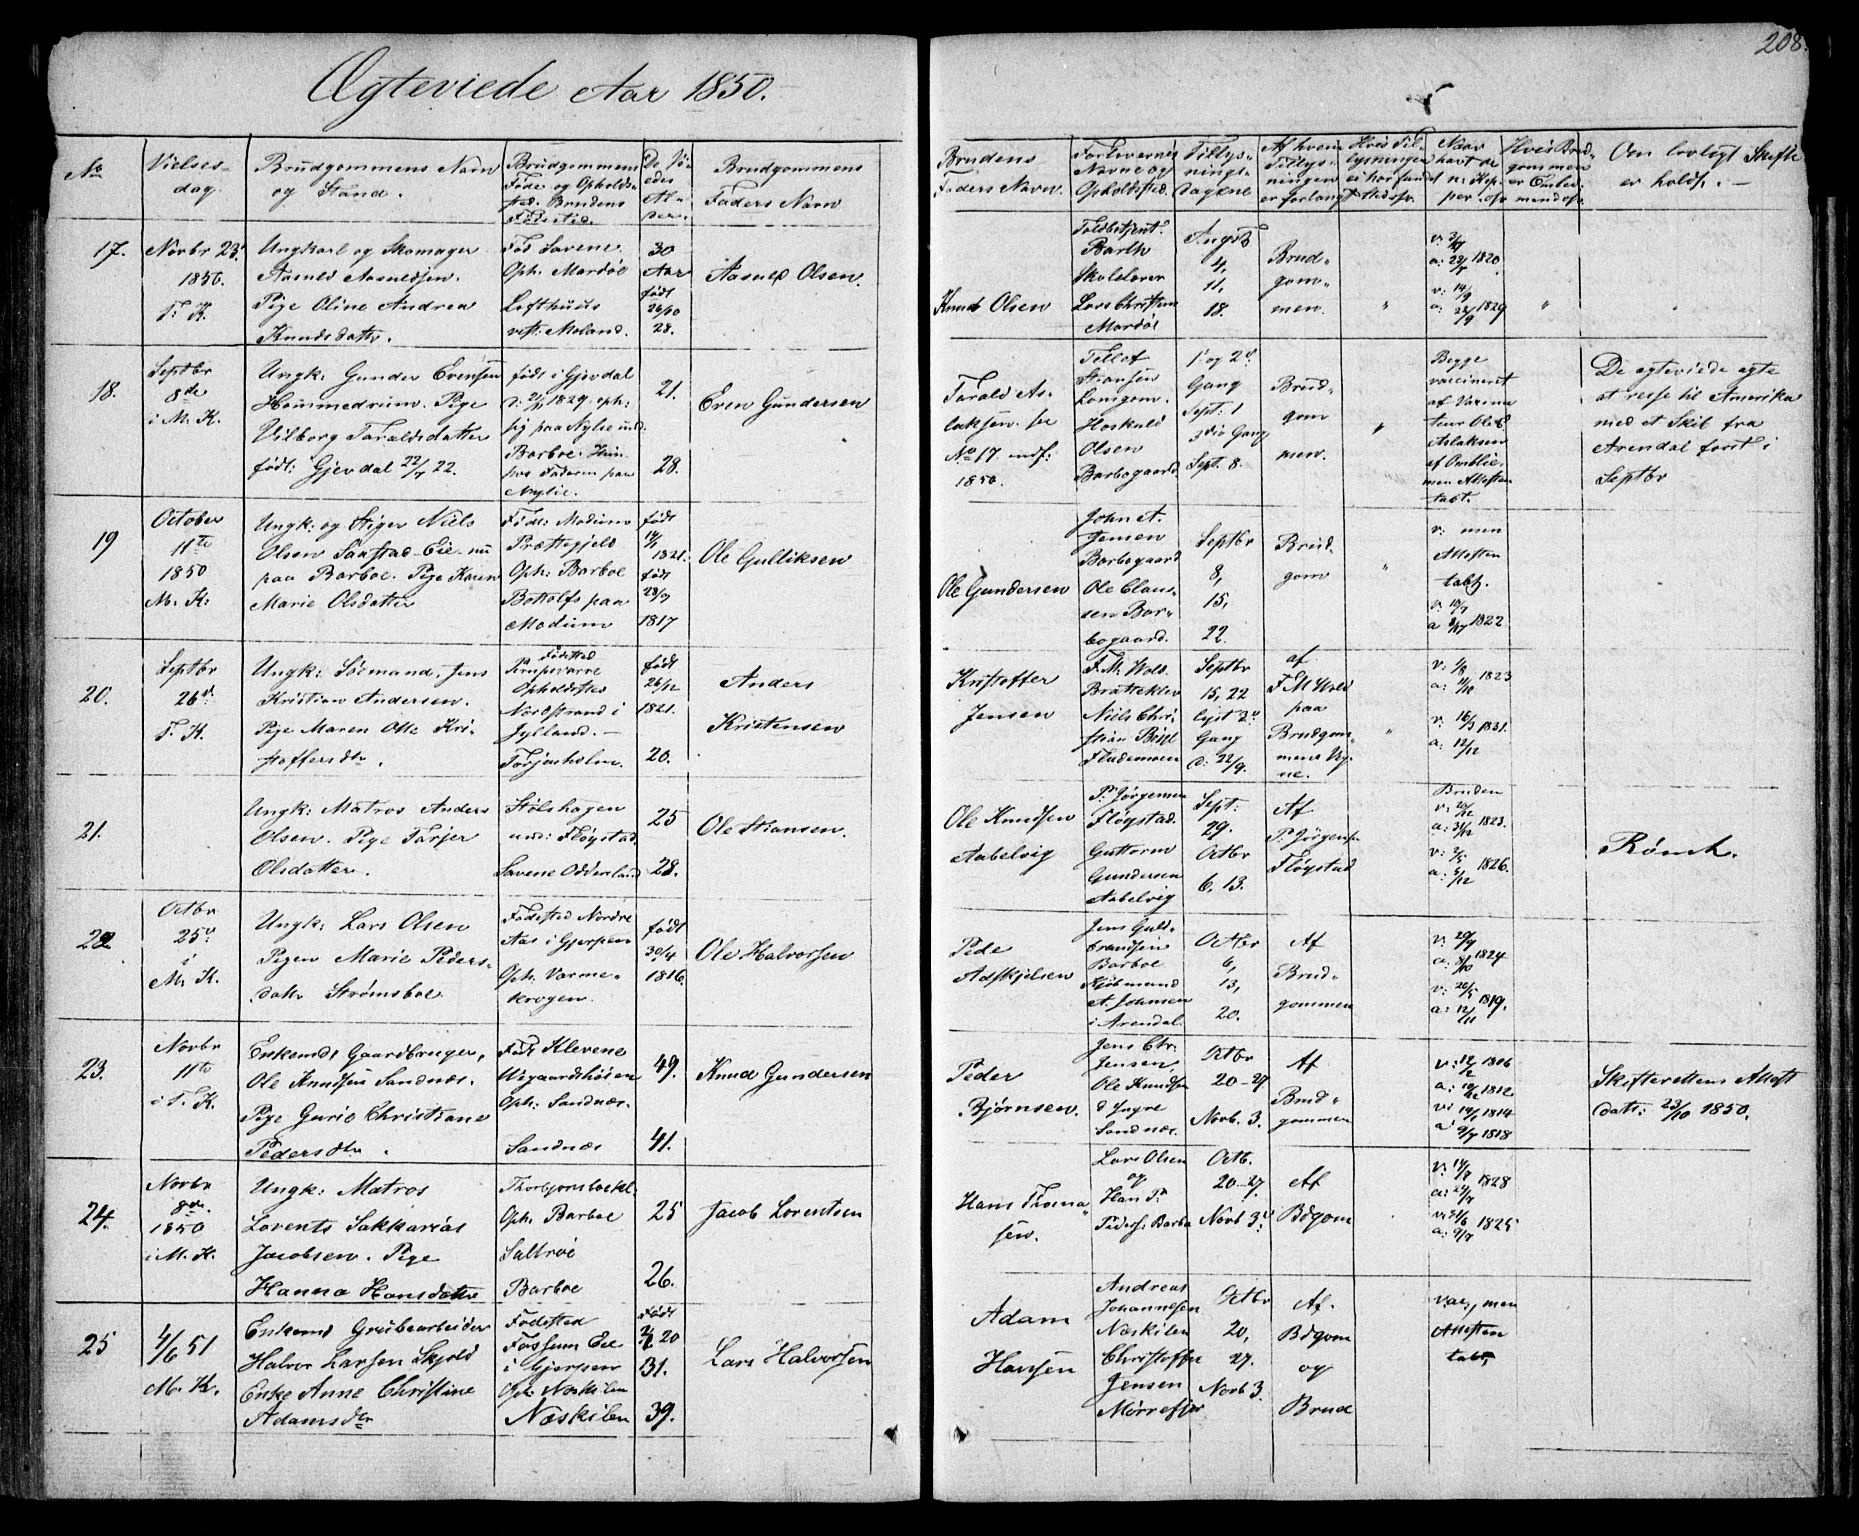 208.
Ægteviede Aar 1850.
No
Vielses-
dag.
Brudgommens Navn
og Stand.
Brudgommens
Føde og Opholds-
sted. Brudens
Fødested.
Brudgommens
Faders Navn
Brudens
Faders Navn.
Forlovernes
Navne og
Opholdssted.
Tillys-
nings-
Dagene
Af hvem
Tillys-
ningen
er forlangt
Om lovligt Skifte
er holdt. -
17.
Novbr 23.
1850.
T. K.
Ungkarl og Skomager
Aasuld Aasuldsen.
Pige Oline Andrea
Knudsdatter.
Fød Savene
Oph. Mardøe
Lofthuus
vest. Moland.
30
Aar
født
26/10
28.
Aasuld Olsen.
Knud Olsen
Toldbetjent
Barth
Skolelærer
Lars Christian
Mardøe
August
4,
11,
18.
Brud-
gom-
men.
1820
1829
18.
Septbr
8de
i M. K.
Ungk: Gunder Evensen
Hommedrum. Pige
Vilborg Taraldsdatter
født: Gjevdal 22/7 22.
født i Gjevdal
1829, oph:
sig paa Nylie und:
Barboe. Hun
hos Faderen paa
Nylie.
21.
28.
Even Gundersen
Tarald As-
laksen. se
No 17 indf:
1850.
Tellef
Stiansen
Longum.
Hoskuld
Olsen
Barbogaard
1 og 2d
Gang
Sept: 1
3die Gang
Sept. 8.
Brud
gom
men.
Begge
vaccineret
af Vaccina
teur Ole
Aslaksen
af Omblie,
men Attesten
tabt.
De egteviede agte
at reise til Amerika
med et Skib fra
Arendal først i
Septbr
19
October
11te
1850
M. K:
Ungk: og Stiger Niels
Olsen Saastad-Eie nu
paa Barboe. Pige Karen
Marie Olsdatter
Født: Modum
Præstegjeld
Oph: Barboe
Bottolfs paa
Modum
født
1821.
født
28/7
1817
Ole Gulliksen
Ole Gundersen
John A.
Jensen
Barbogaard
Ole Claus-
sen Bar-
bogaard.
Septbr
8,
15,
22.
Brud-
gom
v: men
Attesten
tabt.
1822
20.
Septbr
26d
T. K.
Ungk: Sømand, Jens
Kristian Andersen.
Pige Maren Otte Kri-
stoffersdtr.
Fødested
Opholdssted
Nordstrand i
Jylland. -
Torjusholm.
født
26/12
1821.
20.
Anders
Kristensen
Kristoffer
Jensen
F. M. Wold
Bratteklev
Niels Chri-
stian
Flademoen
Septbr
15, 22
lyst 2d
Gang
d: 22/9.
af
F M Wold
paa
Brudgom-
mens Veg-
ne.
1823
v: 16/3 1831.
a: 12/12
21.
Ungk: Matros Anders
Olsen. Pige Tarjer
Olsdatter.
Stølshagen
und: Fløystad
Savene Odderland
25
28.
Ole Stiansen.
Ole Knudsen
Aabelvig
P. Jørgensen
Fløystad.
Guttorm
Gundersen
Aabelvig
Sept:
29.
Octbr
6, 13.
Af
P. Jørgensen
Fløystad
Bruden
1823.
1826.
Rønch.
22
Octbr
25d
i
M. K.
Ungk: Lars Olsen
Pigen Marie Peders-
datr Strømsboe
Fødested Nordre
Aas i Gjerpen
Oph: Varme-
krogen.
født
30/4
1816.
Ole Halvorsen
Pede
Adskjelsen
Jens Guld-
brandsen
Barboe
Kjøbmand
A. Johnsen
i Arendal
Octbr
6,
13,
20.
Af
Brud-
gommen
1824
1819.
23.
Novbr
11te
i T. K.
Enkemd: Gaardbruger,
Ole Knudsen Sandnæs.
Pige Gurie Christiane
Pedersdtr.
Født Klevene
Oph: Sandnæs.
Sandnæs
49.
41.
Knud Gundersen
Peder
Bjørnsen.
Jens Chr.
Jensen,
Ole Knudsen
d Yngre
Sandnæs.
Octbr
20-27
Novb. 3.
Af
Brud-
gommen
1816
1812
1814
1818
Skifterettens Attest
datr: 23/10 1850.
24.
Novbr
8de.
1850
i M. K.
Ungk: Matros
Lorents Sakkarias
Jacobsen. Pige
Hanna Hansdatter
Oph: Barboe
Saltrøe
Barboe
25
26.
Jacob Lorentsen
Hans Thoma-
sen.
Lars Olsen
og
Hans P.
Peders: Barbo
Octb.
20-27.
Novb 3d
Af
Bdgom
1828
1825
25
4/6 51
M. K.
Enkemd Grubearbeider
Halvor Larsen Skjold
Enke Anne Christine
Adamsdtr
Fødested
Fossum Eie
i Gjerpen
Oph: Neskilen
Næskilen
Født
20
31.
39.
Lars Halvorsen
Adam
Hansen
Andreas
Johannesen
Næskilen
Christoffer
Jensen
Mørrefjær
Octbr
20,
27.
Novb 3.
Af.
Bdgom
og
Brud
vac, men
Attesten
tabt,